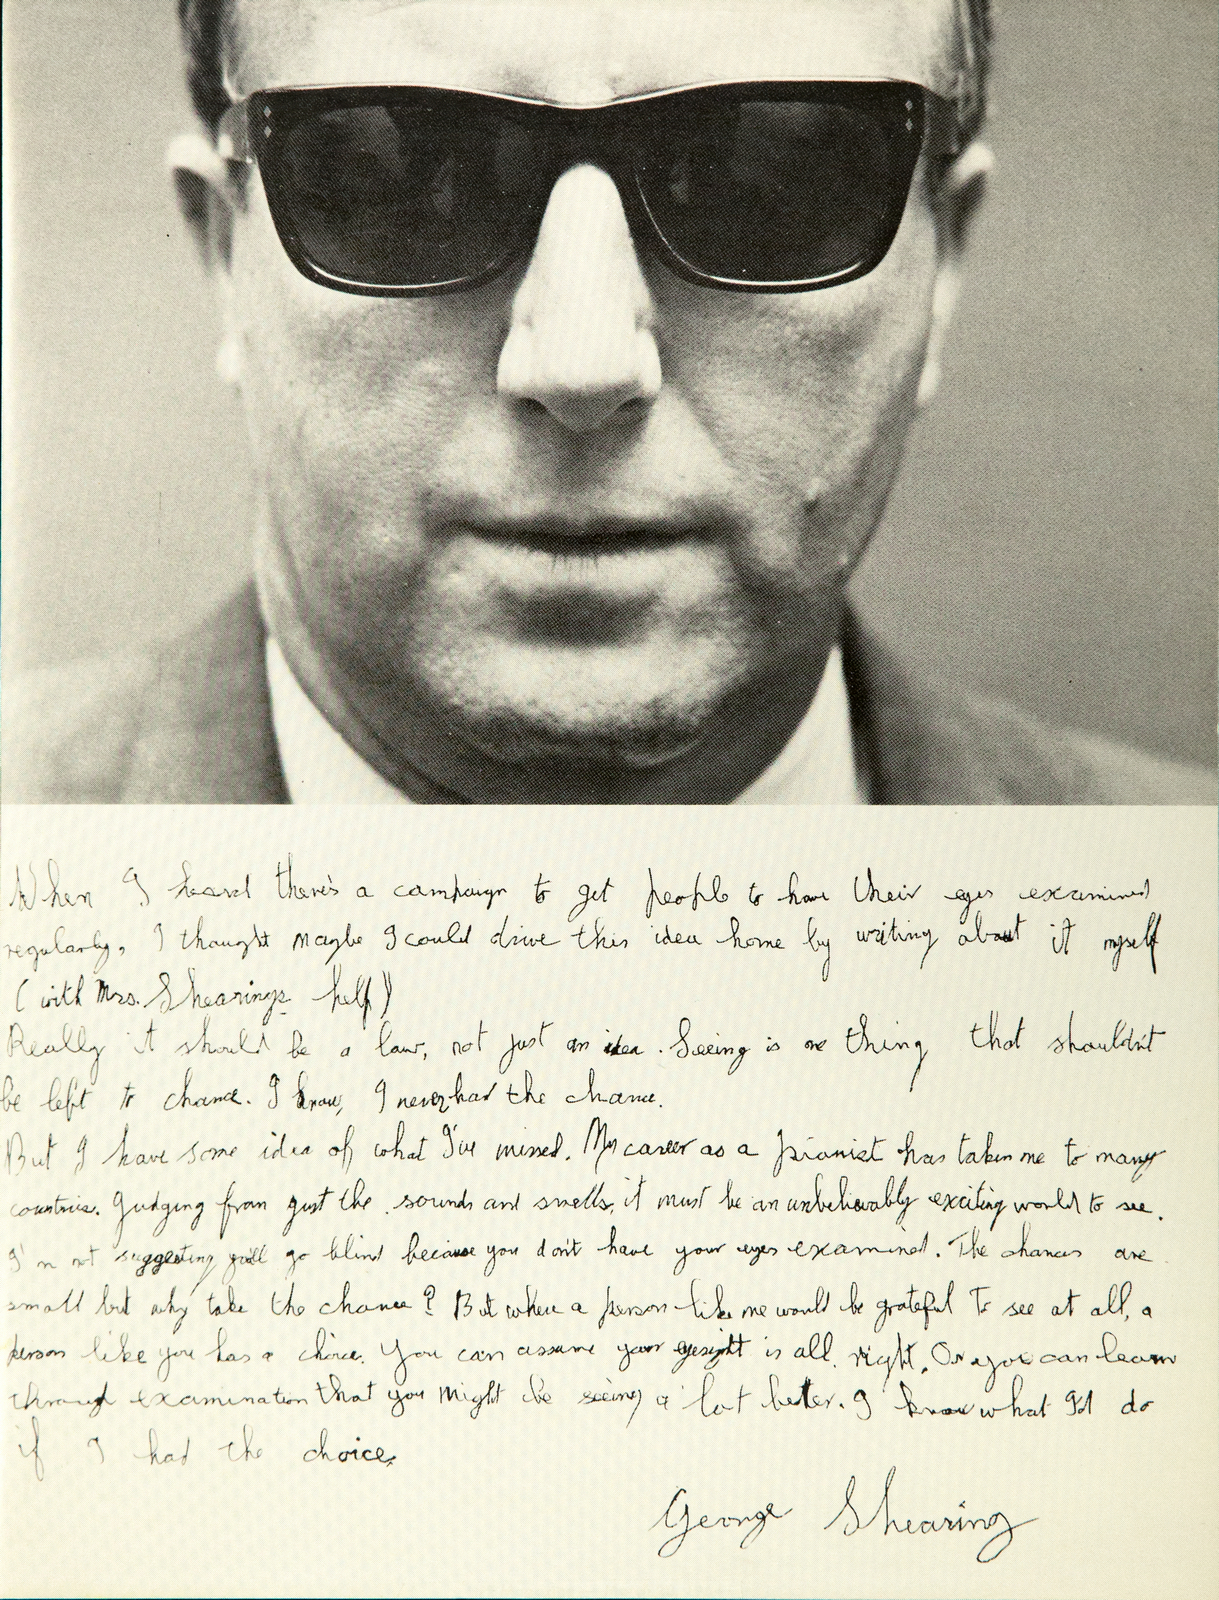 When I heard there's a campaign to get people to have their eyes examined
regularly, I thought maybe I could drive this idea home by writing about it myself
(with Mrs. Shearing's help)
Really it should be a law, not just an idea. Seeing is one thing that shouldn't
be left to chance. I know, I never had the chance.
But I have some idea of what I've missed. My career as a pianist has taken me to many
countries. Judging from just the sounds and smells, it must be an unbelievably exciting world to see.
I'm not suggesting you'll go blind because you don't have your eyes examined. The chances are
small but why take the chance? But where a person like me would be grateful to see at all, a
person like you has a choice. You can assume your eyesight is all right. Or you can learn
through examination that you might be seeing a lot better. I know what I'd do
if I had the choice.
George Shearing